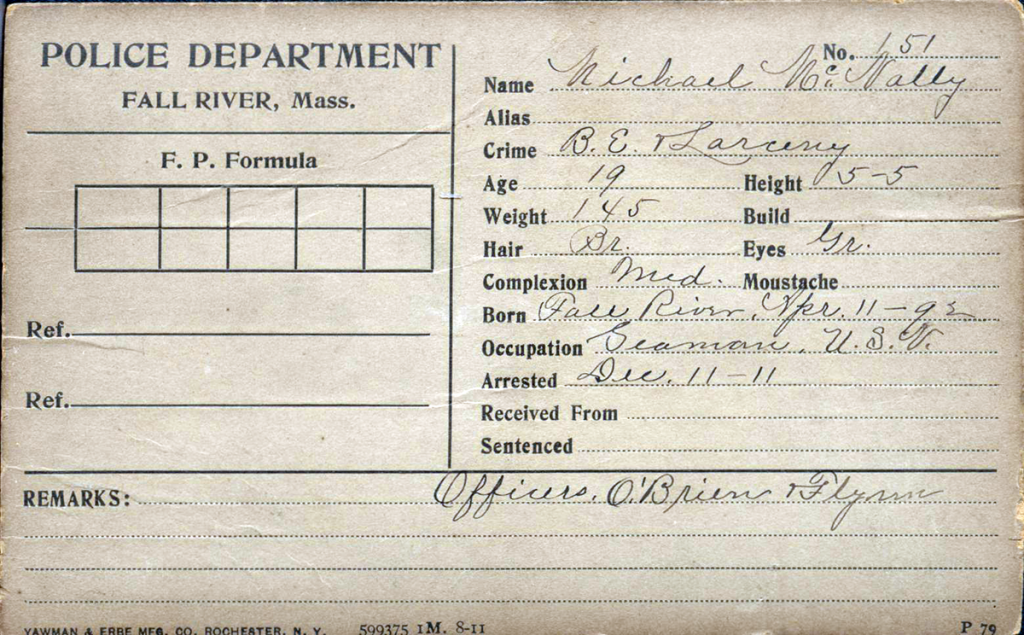 POLICE DEPARTMENT
FALL RIVER, Mass.
F. P. Formula
Ref.
Ref.
No. 151
Name Michael Mc. Nally
Alias
Crime B. E. & Larceny
Age 19 Height 5-5
Weight 145 Build
Hair Br. Eyes Gr.
Complexion Med. Moustache
Born Fall River, Apr. 11-92
Occupation Seaman, U.S.N.
Arrested Dec. 11-11
Received From
Sentenced
REMARKS: Officers, O'Brien & Flynn
YAWMAN & ERBE MFG. CO. ROCHESTER, N. Y. 599375 1M. 8-11 P 79